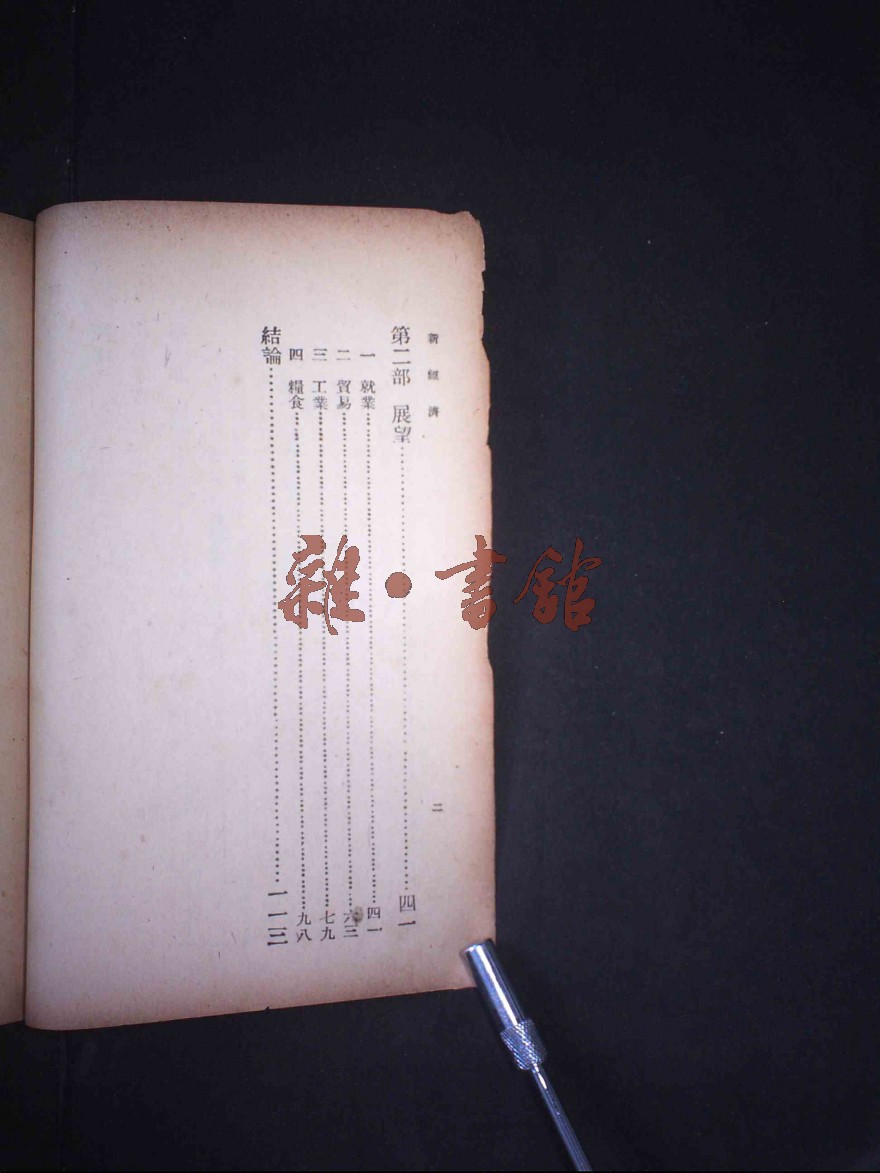 新經濟
二
第二部 展望……四一
一 就業……四一
二 貿易……六三
三 工業……七九
四 糧食……九八
結論……一一三
雜·書館